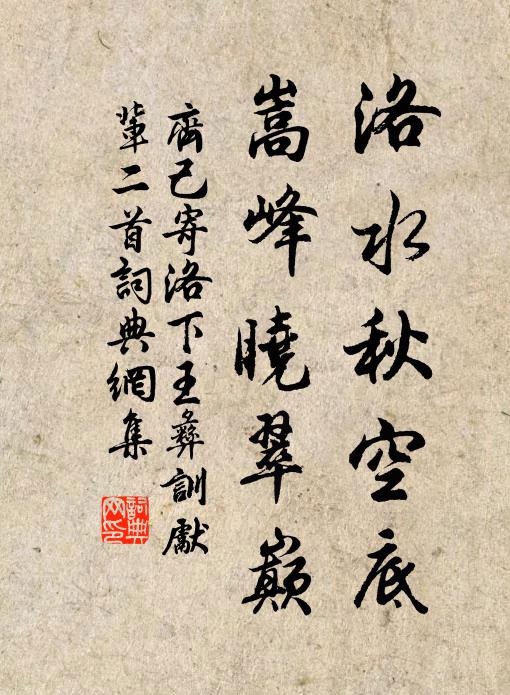 洛水秋空底
嵩峰曉翠巔
齊己寄洛下王彝訓獻
輩二首詞典網集
詞典網印